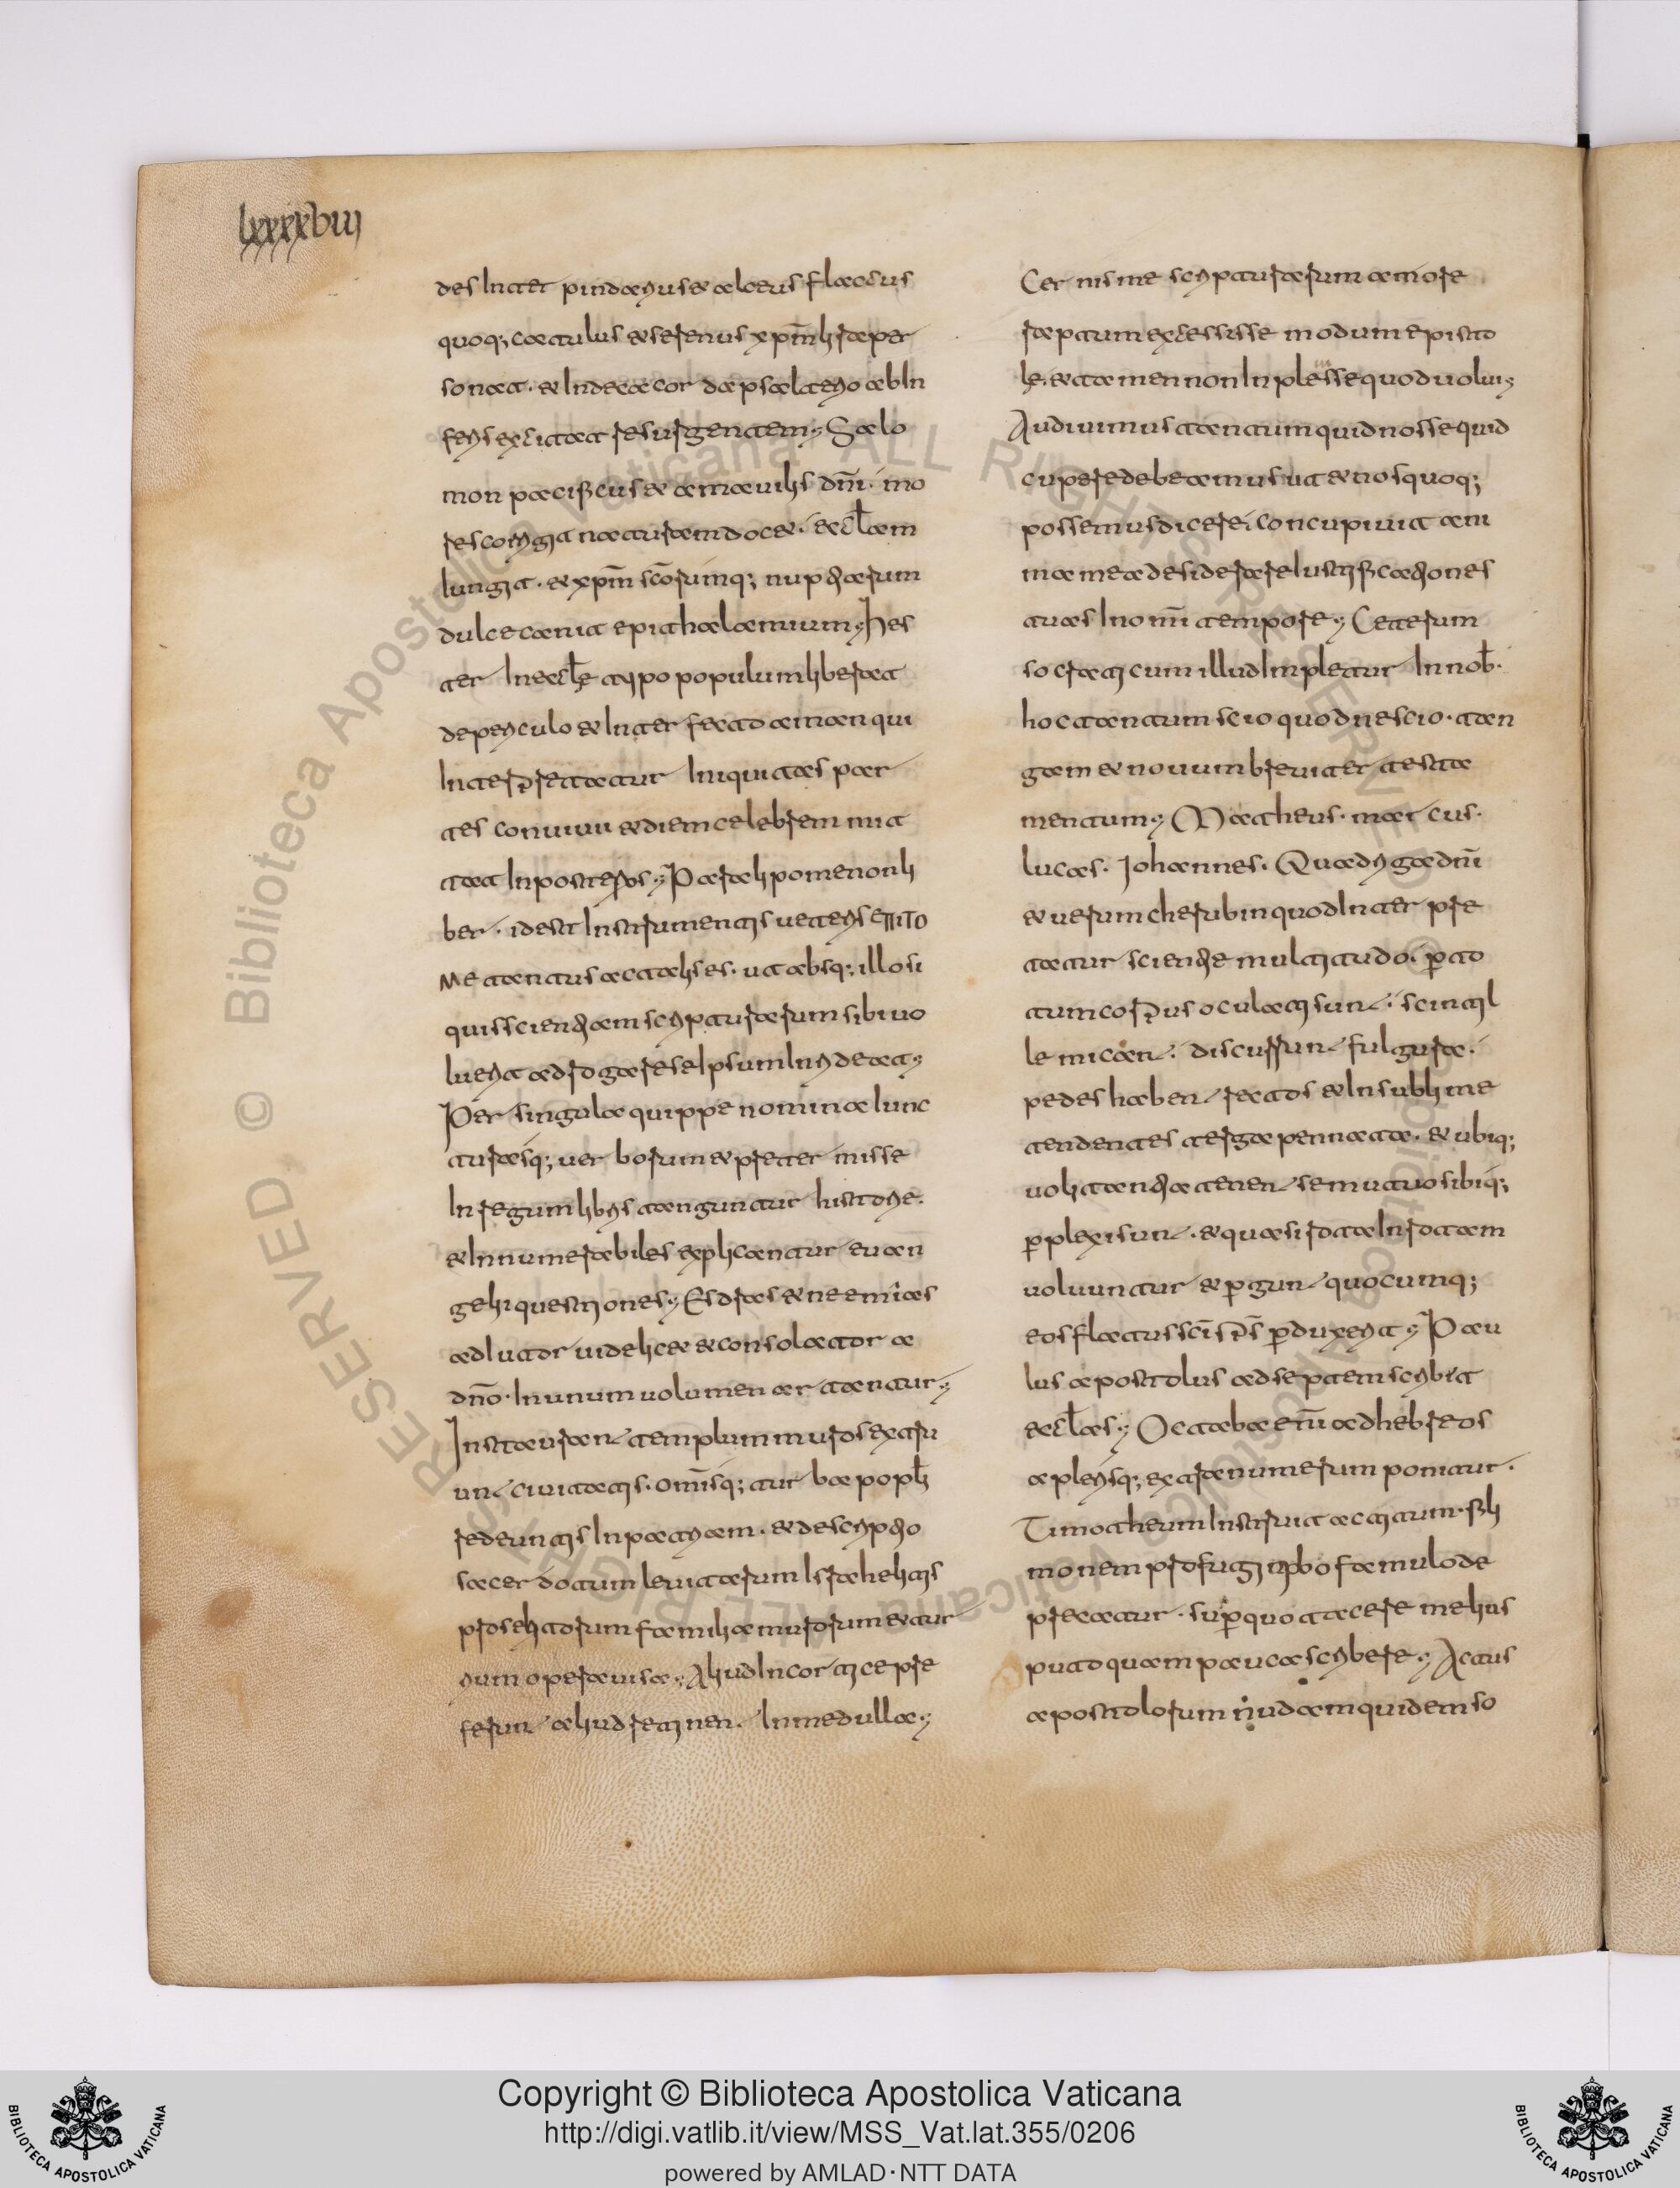 lxxxxviii
des Inter pindarus & alceus flaccus
quoq; catulus & serenus xpm̄ lira per
sonat. & Indecacor da psalterio ab In
feris excitat resurgentem; Salo
mon pacificus & amauilis dn̄i. mo
res corrigit naturam doc&. eccłam
Iungit. & xpm̄ sc̄orumq; nuptiarum
dulce canit epithalamium; Hes
ter Ineccłę typo populum liberat
de periculo & Inter fecto aman qui
Interpretatur Iniquitas par
tes conuiuii & diem celebrem mit
tat In posteros; Paralipomenon li
ber. id est Instrumentis ueteris εΠΙΤΟ
ΜΕ tantus ac talis es. ut absq; illo si
quis scientiam scripturarum sibi uo
luerit adrogare seIpsum Inrideat;
Per singula quippe nomina Iunc
turasq; uer borum & preter misse
In regum libris tanguntur historie.
& Innumerabiles explicantur euan
gelii questiones; Esdras & neemias
adIutor uidelic& & consolator a
dn̄o. In unum uolumen ar tantur;
Instauran templum muros extru
un ciuitatis. om̄isq; tur ba popłi
redeuntis In patriam. & descriptio
sacer dotum leuitarum Israhelitis
proselitorum familia murorum & tur
rium opera uisa; Aliud In cor tice pre
ferun aliud retinen. In medulla;
Cer nis me scripturarum amore
raptum excessisse modum episto
le. & tamen non Inplesse quod uolui;
Audiuimus tantum quid nosse quid
cupere debeamus ut & nos quoq;
possemus dicere; concupiuit ani
ma mea desiderare Iustificationes
tuas In om̄i tempore; Ceterum
socraticum illud Impletur In nob̄.
hoc tantum scio quod nescio. tan
gam & nouum breuiter testa
mentum; Matheus. mar cus.
lucas. Iohannes. Quadriga dn̄i
& uerum cherubin quod Inter pre
tatur scientie multitudo. p̱ to
tum corpus oculati sun. scintil
le mican. discurrun fulgura.
pedes haben rectos & In sublime
tendentes terga pennata. & ubiq;
uolitantia tenen se mutuo sibiq;
p̱plexi sun. & quasi rota In rotam
uoluuntur & p̱gun quocumq;
eos flatus sc̄i sp̄s p̱duxerit; Pau
lus apostolus ad septem scribit
eccłas; Octaba eni̅ ad hebreos
a plerisq; extra numerum ponitur.
Timotheum Instruit ac titum. fili
monem pro fugitibo famulo de
precatur. sup̱ quo tacere melius
puto quam pauca scribere; Actus
apostolorum nudam quidem so
© Biblioteca Apostolica Vaticana. ALL RIGHTS RESERVED
Copyright © Biblioteca Apostolica Vaticana
http://digi.vatlib.it/view/MSS_Vat.lat.355/0206
powered by AMLAD・NTT DATA
BIBLIOTECA APOSTOLICA VATICANA
BIBLIOTECA APOSTOLICA VATICANA